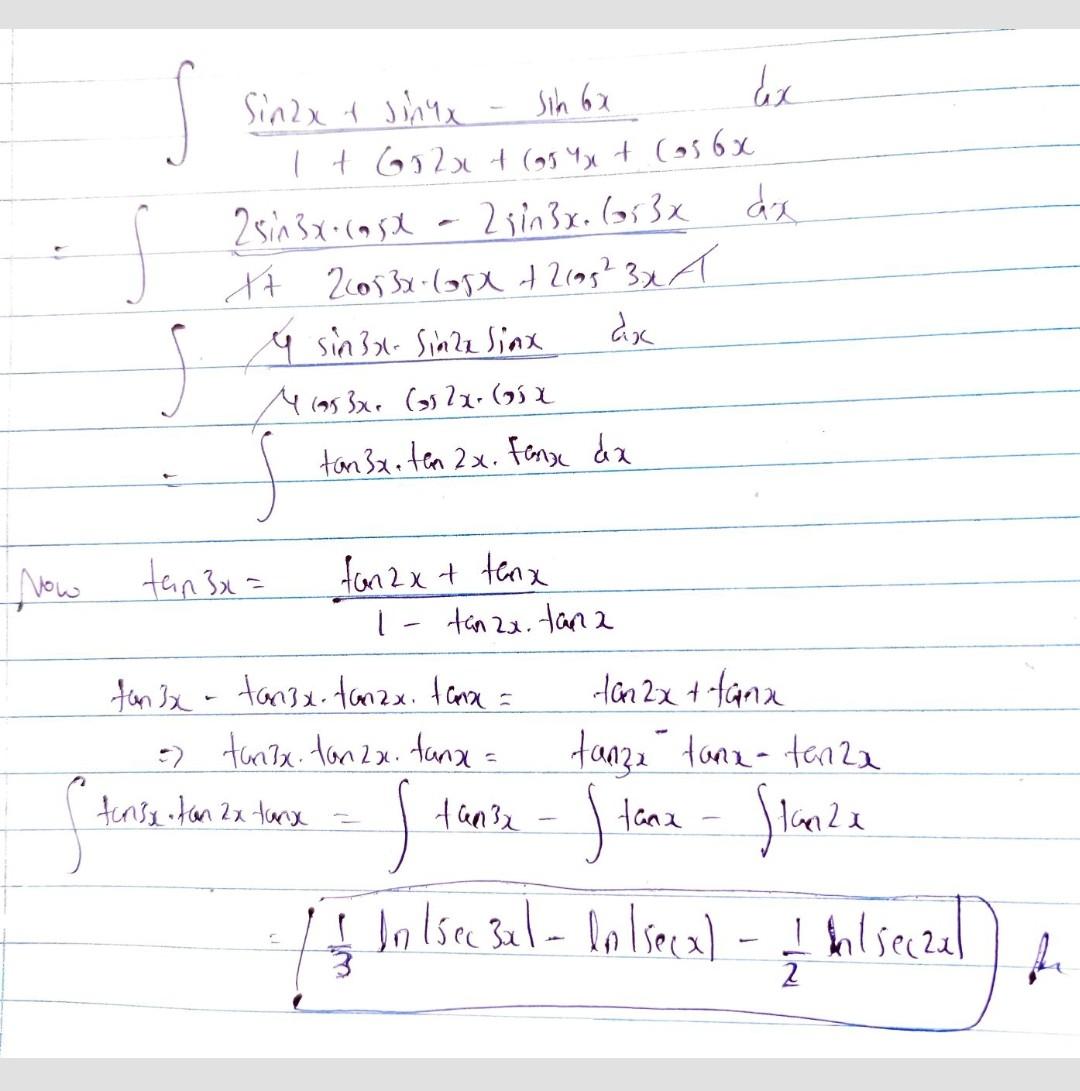 ∫ (sin2x + sin4x - sin6x) / (1 + cos2x + cos4x + cos6x) dx
= ∫ (2sin3x·cosx - 2sin3x·cos3x) / (1 + 2cos3x·cosx + 2cos²3x - 1) dx
∫ (4 sin3x · sin2x sinx) / (4 cos3x · cos2x · cosx) dx
= ∫ tan3x · tan2x · tanx dx
Now tan3x = (tan2x + tanx) / (1 - tan2x · tanx)
tan3x - tan3x · tan2x · tanx = tan2x + tanx
=> tan3x · tan2x · tanx = tan3x - tanx - tan2x
∫ tan3x · tan2x tanx = ∫ tan3x - ∫ tanx - ∫ tan2x
= 1/3 ln|sec3x| - ln|secx| - 1/2 ln|sec2x|